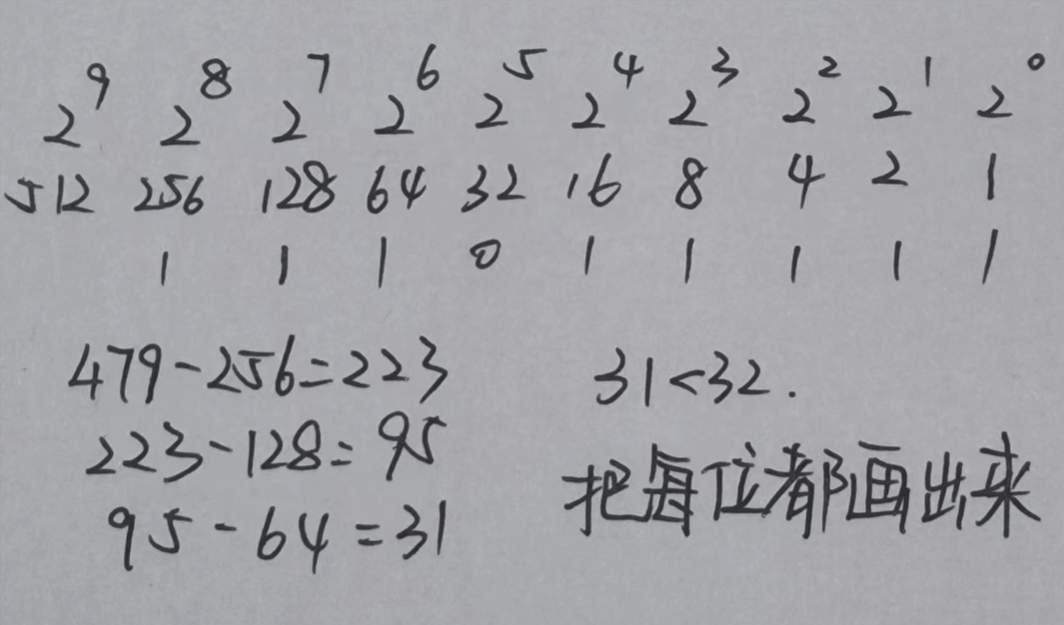 2⁹ 2⁸ 2⁷ 2⁶ 2⁵ 2⁴ 2³ 2² 2¹ 2⁰
512 256 128 64 32 16 8 4 2 1
1 1 1 0 1 1 1 1 1
479-256=223 31<32.
223-128=95
95-64=31
把每位都画出来